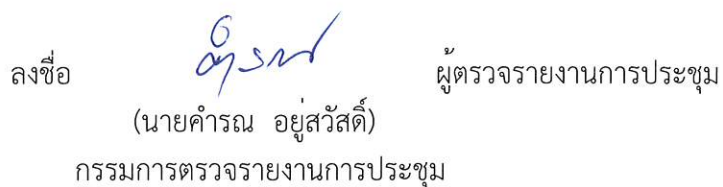 ลงชื่อ คำรณ ผู้ตรวจรายงานการประชุม
(นายคำรณ อยู่สวัสดิ์)
กรรมการตรวจรายงานการประชุม